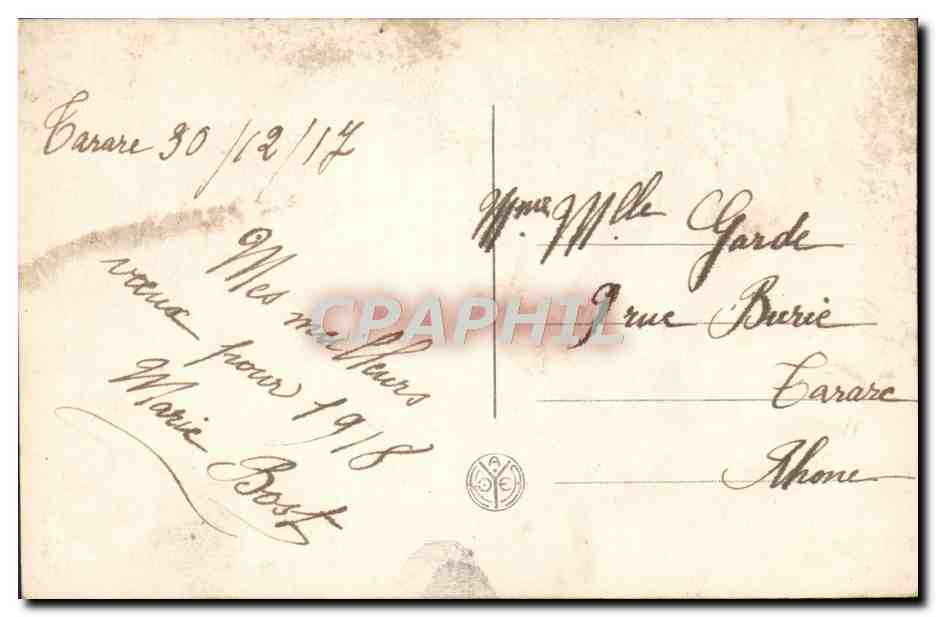 Tarare 30/12/17
Mes meilleurs
vœux pour 1918
Marie Bost
Mme Mlle Garde
9 rue Burie
Tarare
Rhone
CPAPHIL